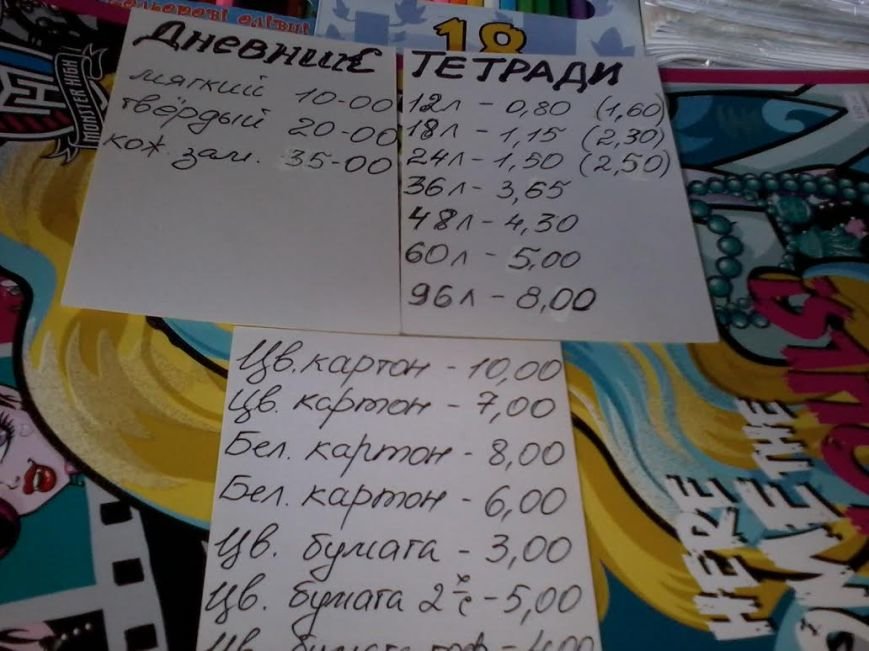 кольорові олівці
18
MONSTER HIGH
Дневники
мягкий 10-00
твёрдый 20-00
кож. зам. 35-00
ТЕТРАДИ
12л - 0,80 (1,60)
18л - 1,15 (2,30)
24л - 1,50 (2,50)
36л - 3,65
48л - 4,30
60л - 5,00
96л - 8,00
Цв. картон - 10,00
Цв. картон - 7,00
Бел. картон - 8,00
Бел. картон - 6,00
Цв. бумага - 3,00
Цв. бумага 2х с - 5,00
Цв. бумага - 4,00
HERE
COME THE